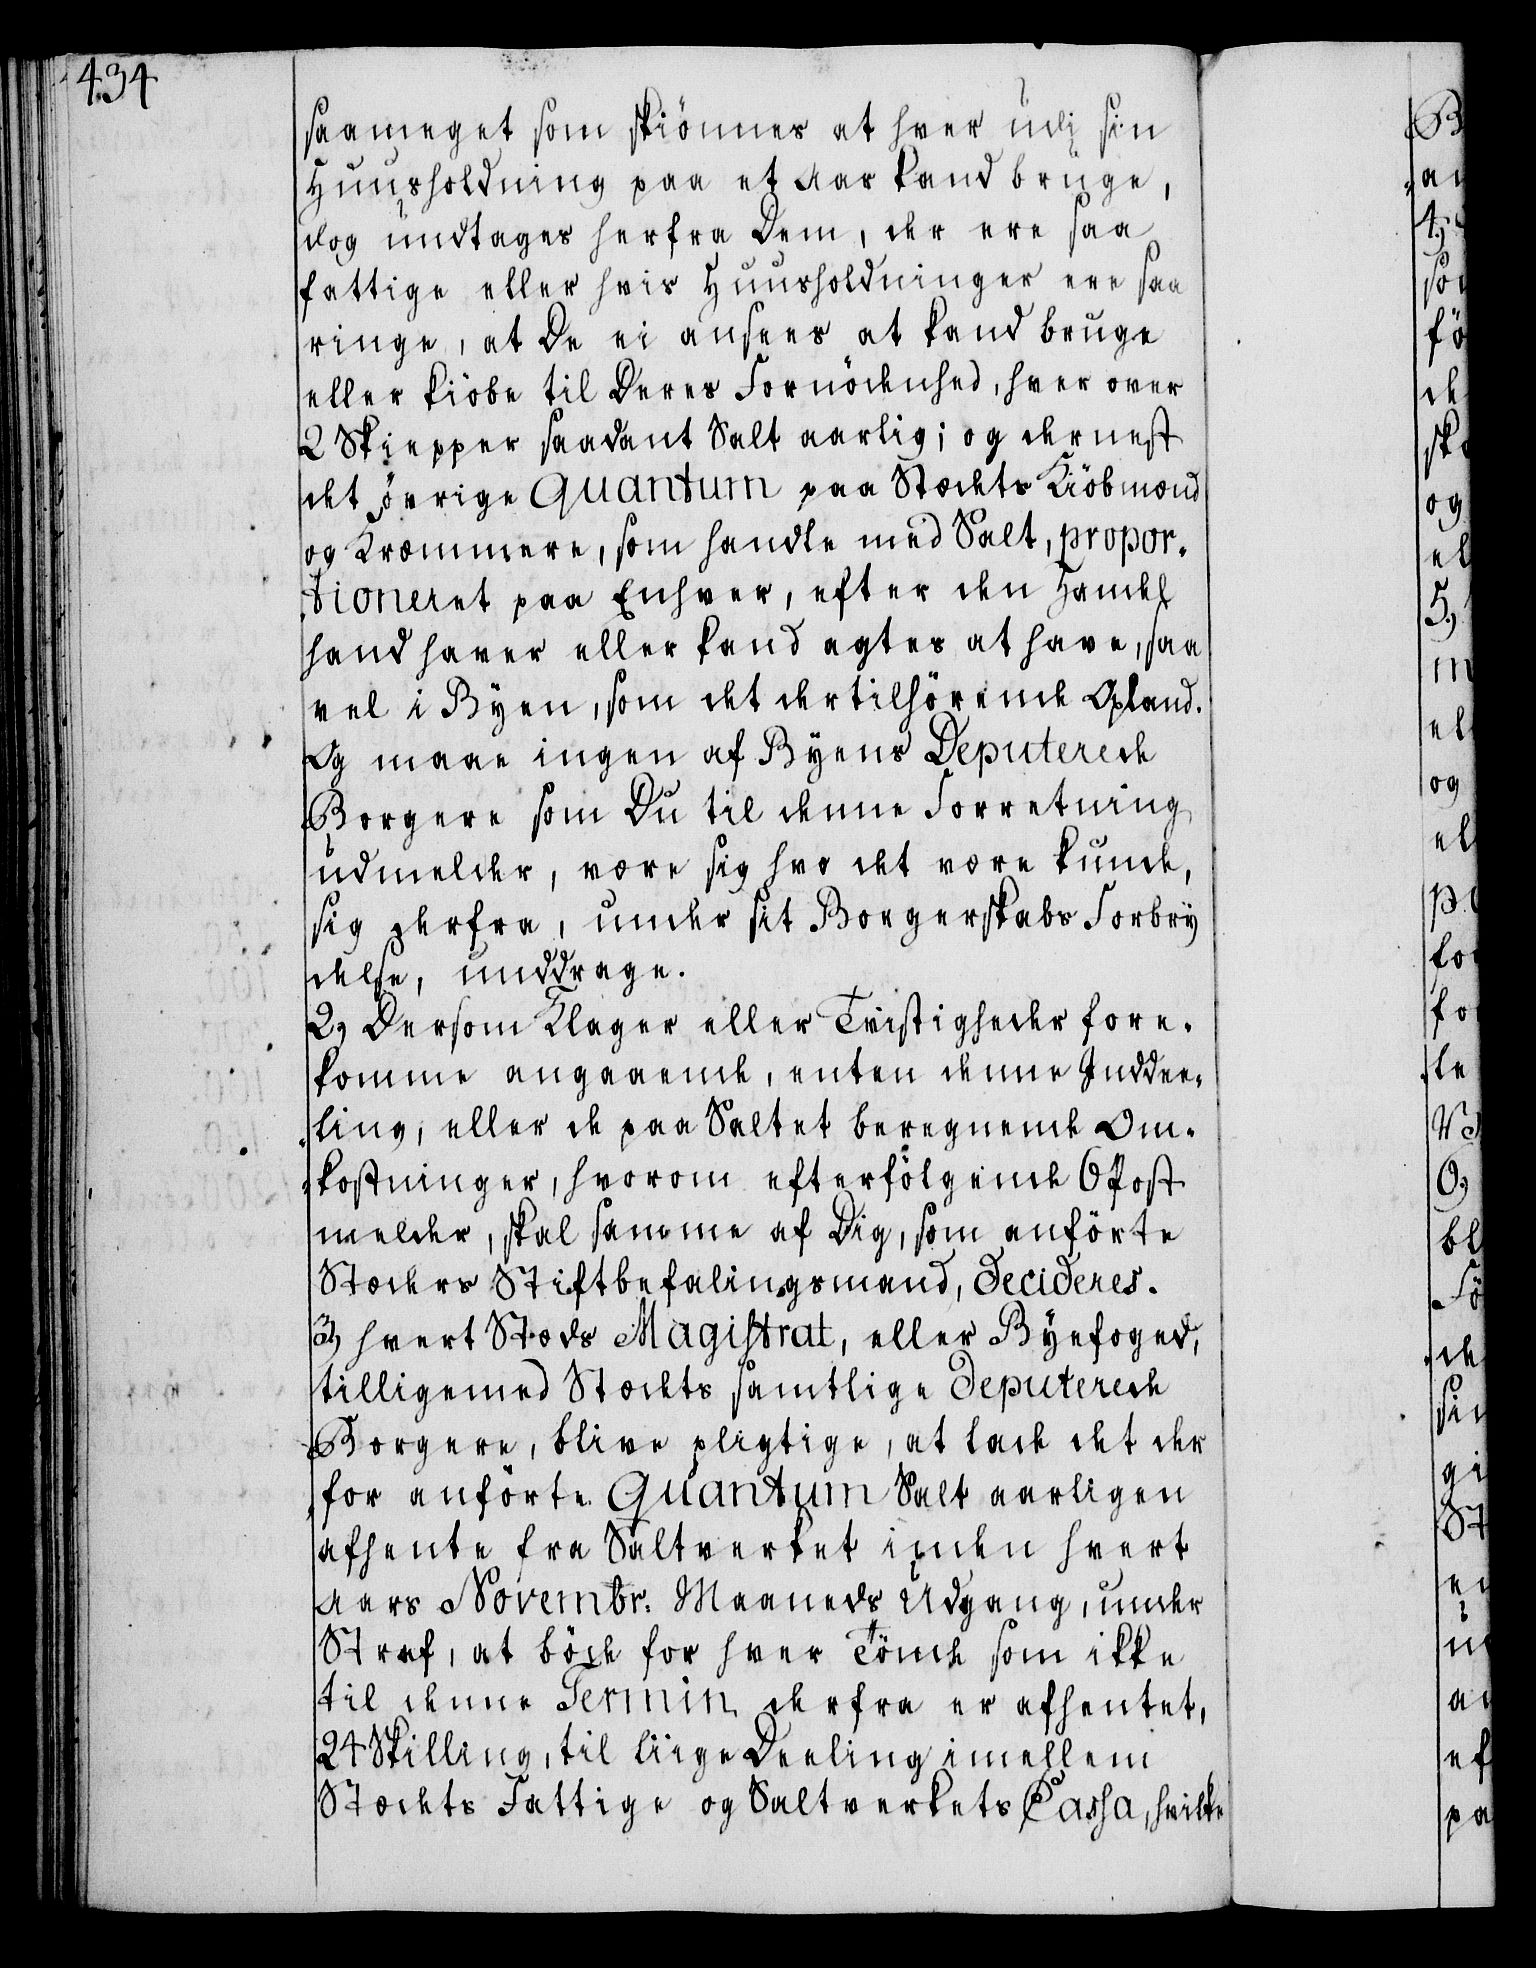 434
saameget som skiönnes at hver udi sin
Huusholdning paa et Aar kand bruge,
dog undtages herfra Dem, der ere saa
fattige eller hvis Huusholdninger ere saa
ringe, at De ei ansees at kand bruge
eller kiöbe til Deres Fornödenhed, hver over
2 Skiepper saadant Salt aarlig; og dernest
det övrige Quantum paa Stædets Kiöbmænd
og Kræmmere, som handle med Salt, propor-
tioneret paa Enhver, efter den Handel
hand haver eller kand agtes at have, saa
vel i Byen, som det dertilhörende Opland.
Og maae ingen af Byens Deputerede
Borgere som Du til denne Forretning
udmelder, være sig hvo det være kunde,
sig herfra, under sit Borgerskabs Forbry
delse, unddrage.
2, Dersom Klager eller Tvistigheder fore-
komme angaaende, enten denne Inddee-
ling, eller de paa Saltet beregnende Om-
kostninger, hvorom efterfölgende 6 Post
melder, skal samme af Dig, som anförte
Stæders Stiftbefalingsmand, decideres.
3, hvert Stæds Magistrat, eller Byefoged,
tilligemed Stædets samtlige deputerede
Borgere, blive pligtige, at lade det der
for anförte Quantum Salt aarligen
afhente fra Saltverket inden hvert
Aars Novembr. Maaneds Udgang, under
Straf, at böde for hver Tönde som ikke
til denne Termin derfra er afhentet,
24 Skilling, til liige Deeling imellem
Stædets Fattige og Saltverkets Cassa, hvilke